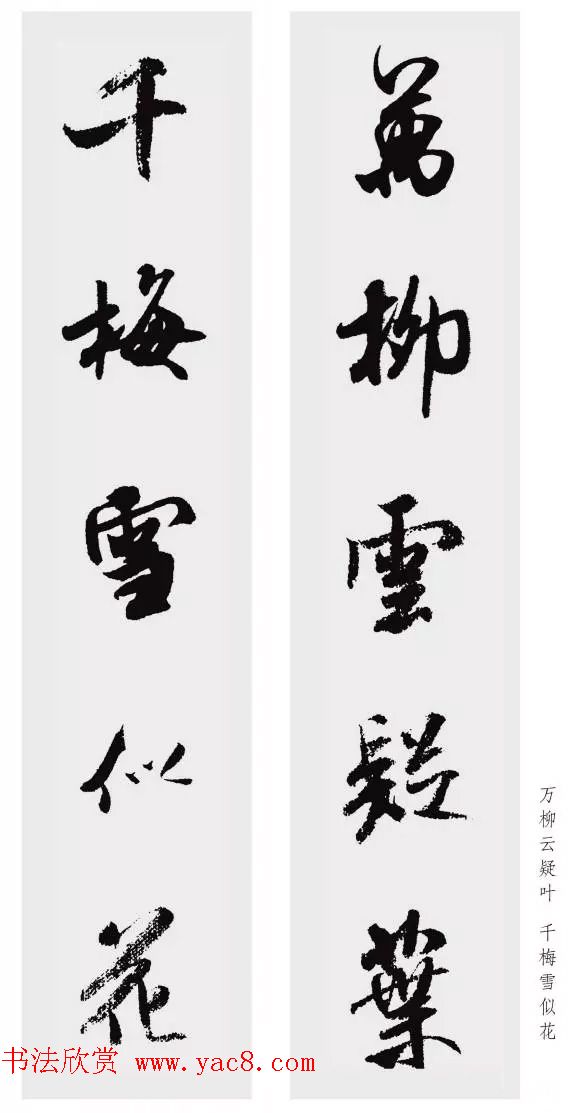 萬柳雲疑葉
千梅雪似花
万柳云疑叶 千梅雪似花
书法欣赏 www.yac8.com